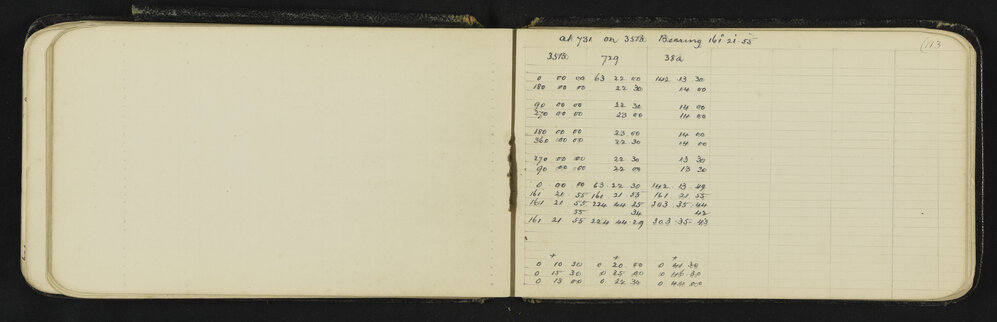 at 731 on 35TB Bearing 161°.21.55
(113
35TB 729 38a
0 00 00 63 22 00 142 13 30
180 00 00 22 30 14 00
90 00 00 22 30 14 00
270 00 00 23 00 14 00
180 00 00 23 00 14 00
360 00 00 22 30 14 00
270 00 00 22 30 13 30
90 00 00 22 00 13 30
0 00 00 63.22 30 142 13 49
161 21 55 161 21 55 161 21.55
161 21 55 224 44 25 303 35.44
55 34 42
161 21 55 224 44 29 303.35.43
+ + +
0 10 30 0 20 00 0 41 30
0 15 30 0 25 00 0 46.30
0 13 00 0 22 30 0 44 00